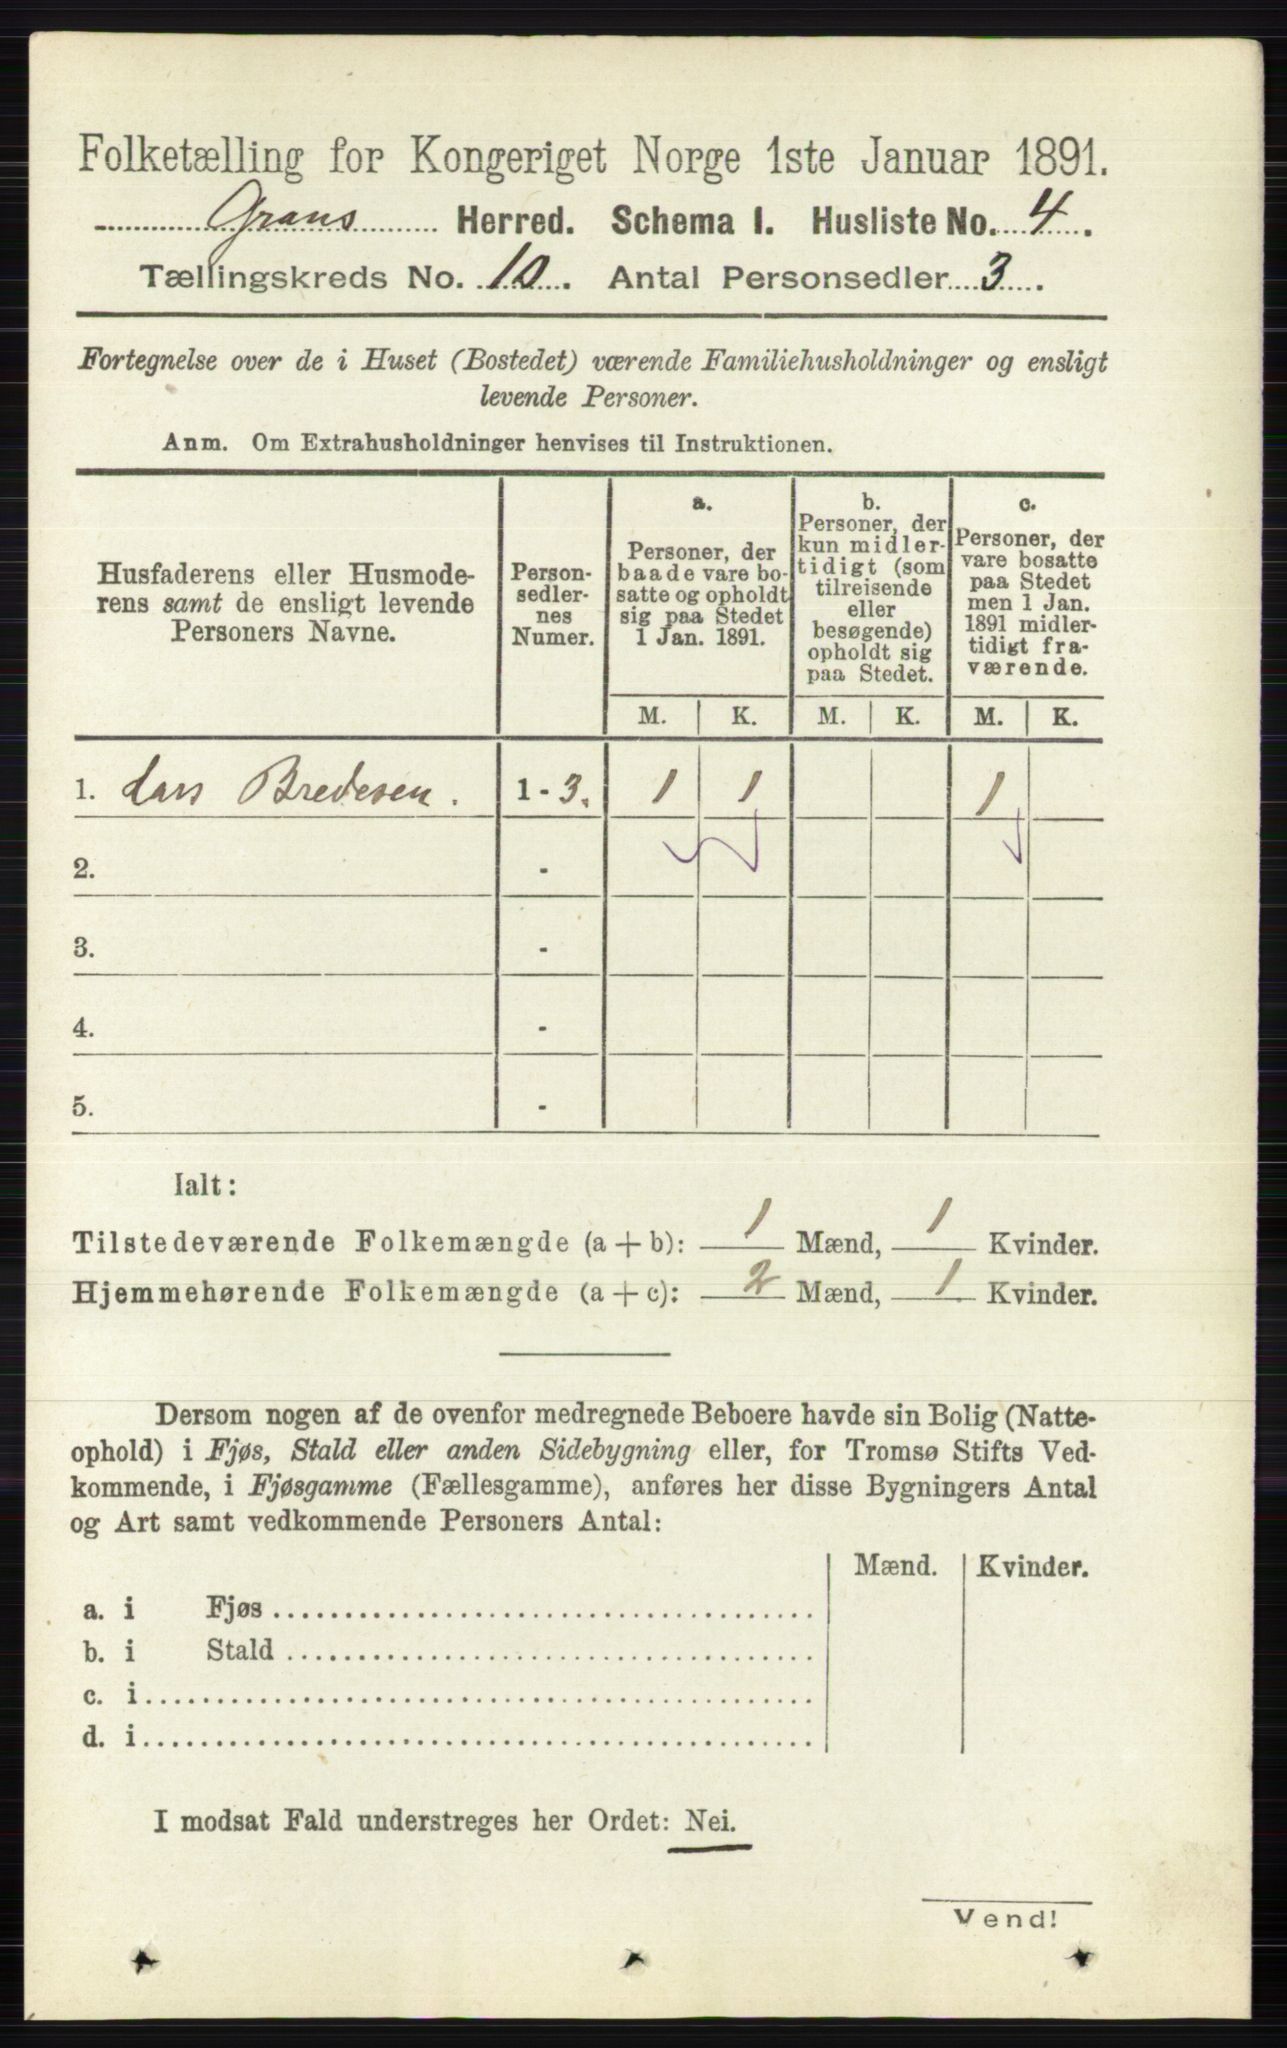 Folketælling for Kongeriget Norge 1ste Januar 1891.
Grans Herred. Schema I. Husliste No. 4.
Tællingskreds No. 10. Antal Personsedler 3.
Fortegnelse over de i Huset (Bostedet) værende Familiehusholdninger og ensligt
levende Personer.
Anm. Om Extrahusholdninger henvises til Instruktionen.
Husfaderens eller Husmode-
rens samt de ensligt levende
Personers Navne.
Person-
sedler-
nes
Numer.
a.
Personer, der
baade vare bo-
satte og opholdt
sig paa Stedet
1 Jan. 1891.
b.
Personer, der
kun midler-
tidigt (som
tilreisende
eller
besøgende)
opholdt sig
paa Stedet.
c.
Personer, der
vare bosatte
paa Stedet
men 1 Jan.
1891 midler-
tidigt fra-
værende.
M. K. M. K. M. K.
1. Lars Bredesen. 1 - 3. 1 1 1
2. -
3. -
4. -
5. -
Ialt:
Tilstedeværende Folkemængde (a + b): 1 Mænd, 1 Kvinder.
Hjemmehørende Folkemængde (a + c): 2 Mænd, 1 Kvinder.
Dersom nogen af de ovenfor medregnede Beboere havde sin Bolig (Natte-
ophold) i Fjøs, Stald eller anden Sidebygning eller, for Tromsø Stifts Ved-
kommende, i Fjøsgamme (Fællesgamme), anføres her disse Bygningers Antal
og Art samt vedkommende Personers Antal:
Mænd. Kvinder.
a. i Fjøs
b. i Stald
c. i
d. i
I modsat Fald understreges her Ordet: Nei.
Vend!